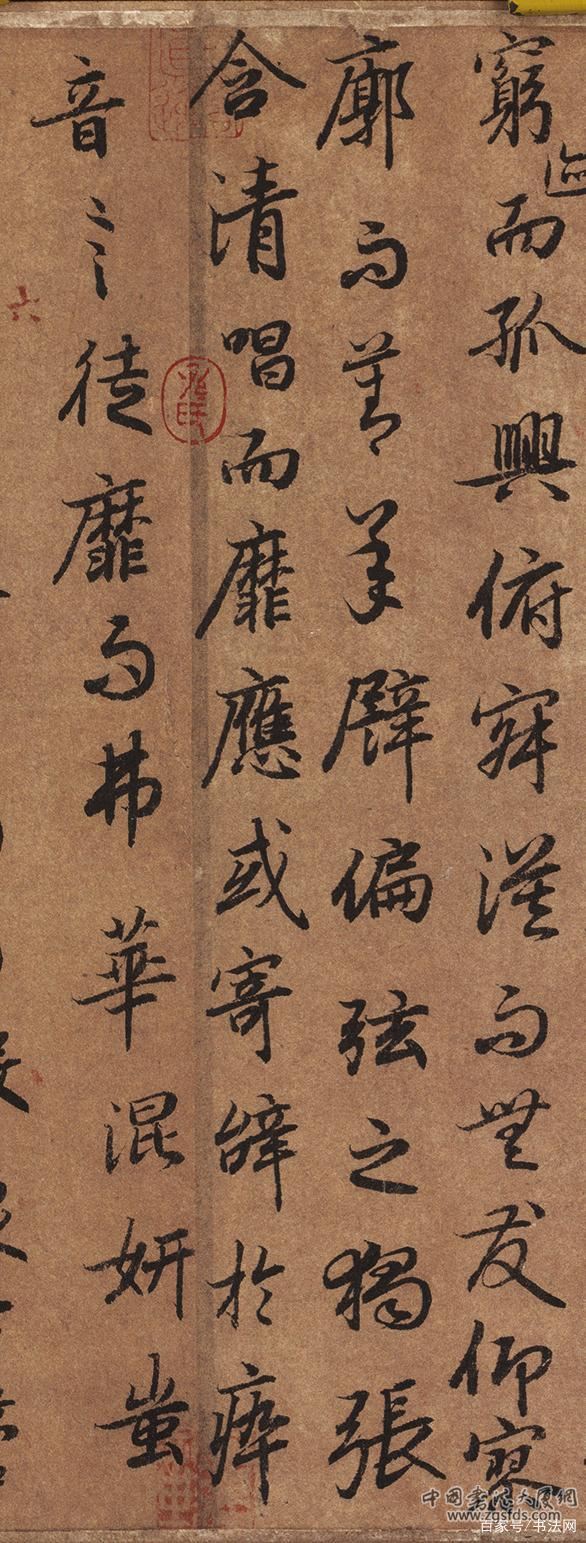 窮迹而孤興俯寂漠而無友仰寥
廓而莫承譬偏弦之獨張
含清唱而靡應或寄辭於瘁
音言徒靡而弗華混妍蚩
中國書法大厦網
www.zgsfds.com
百家号/书法网